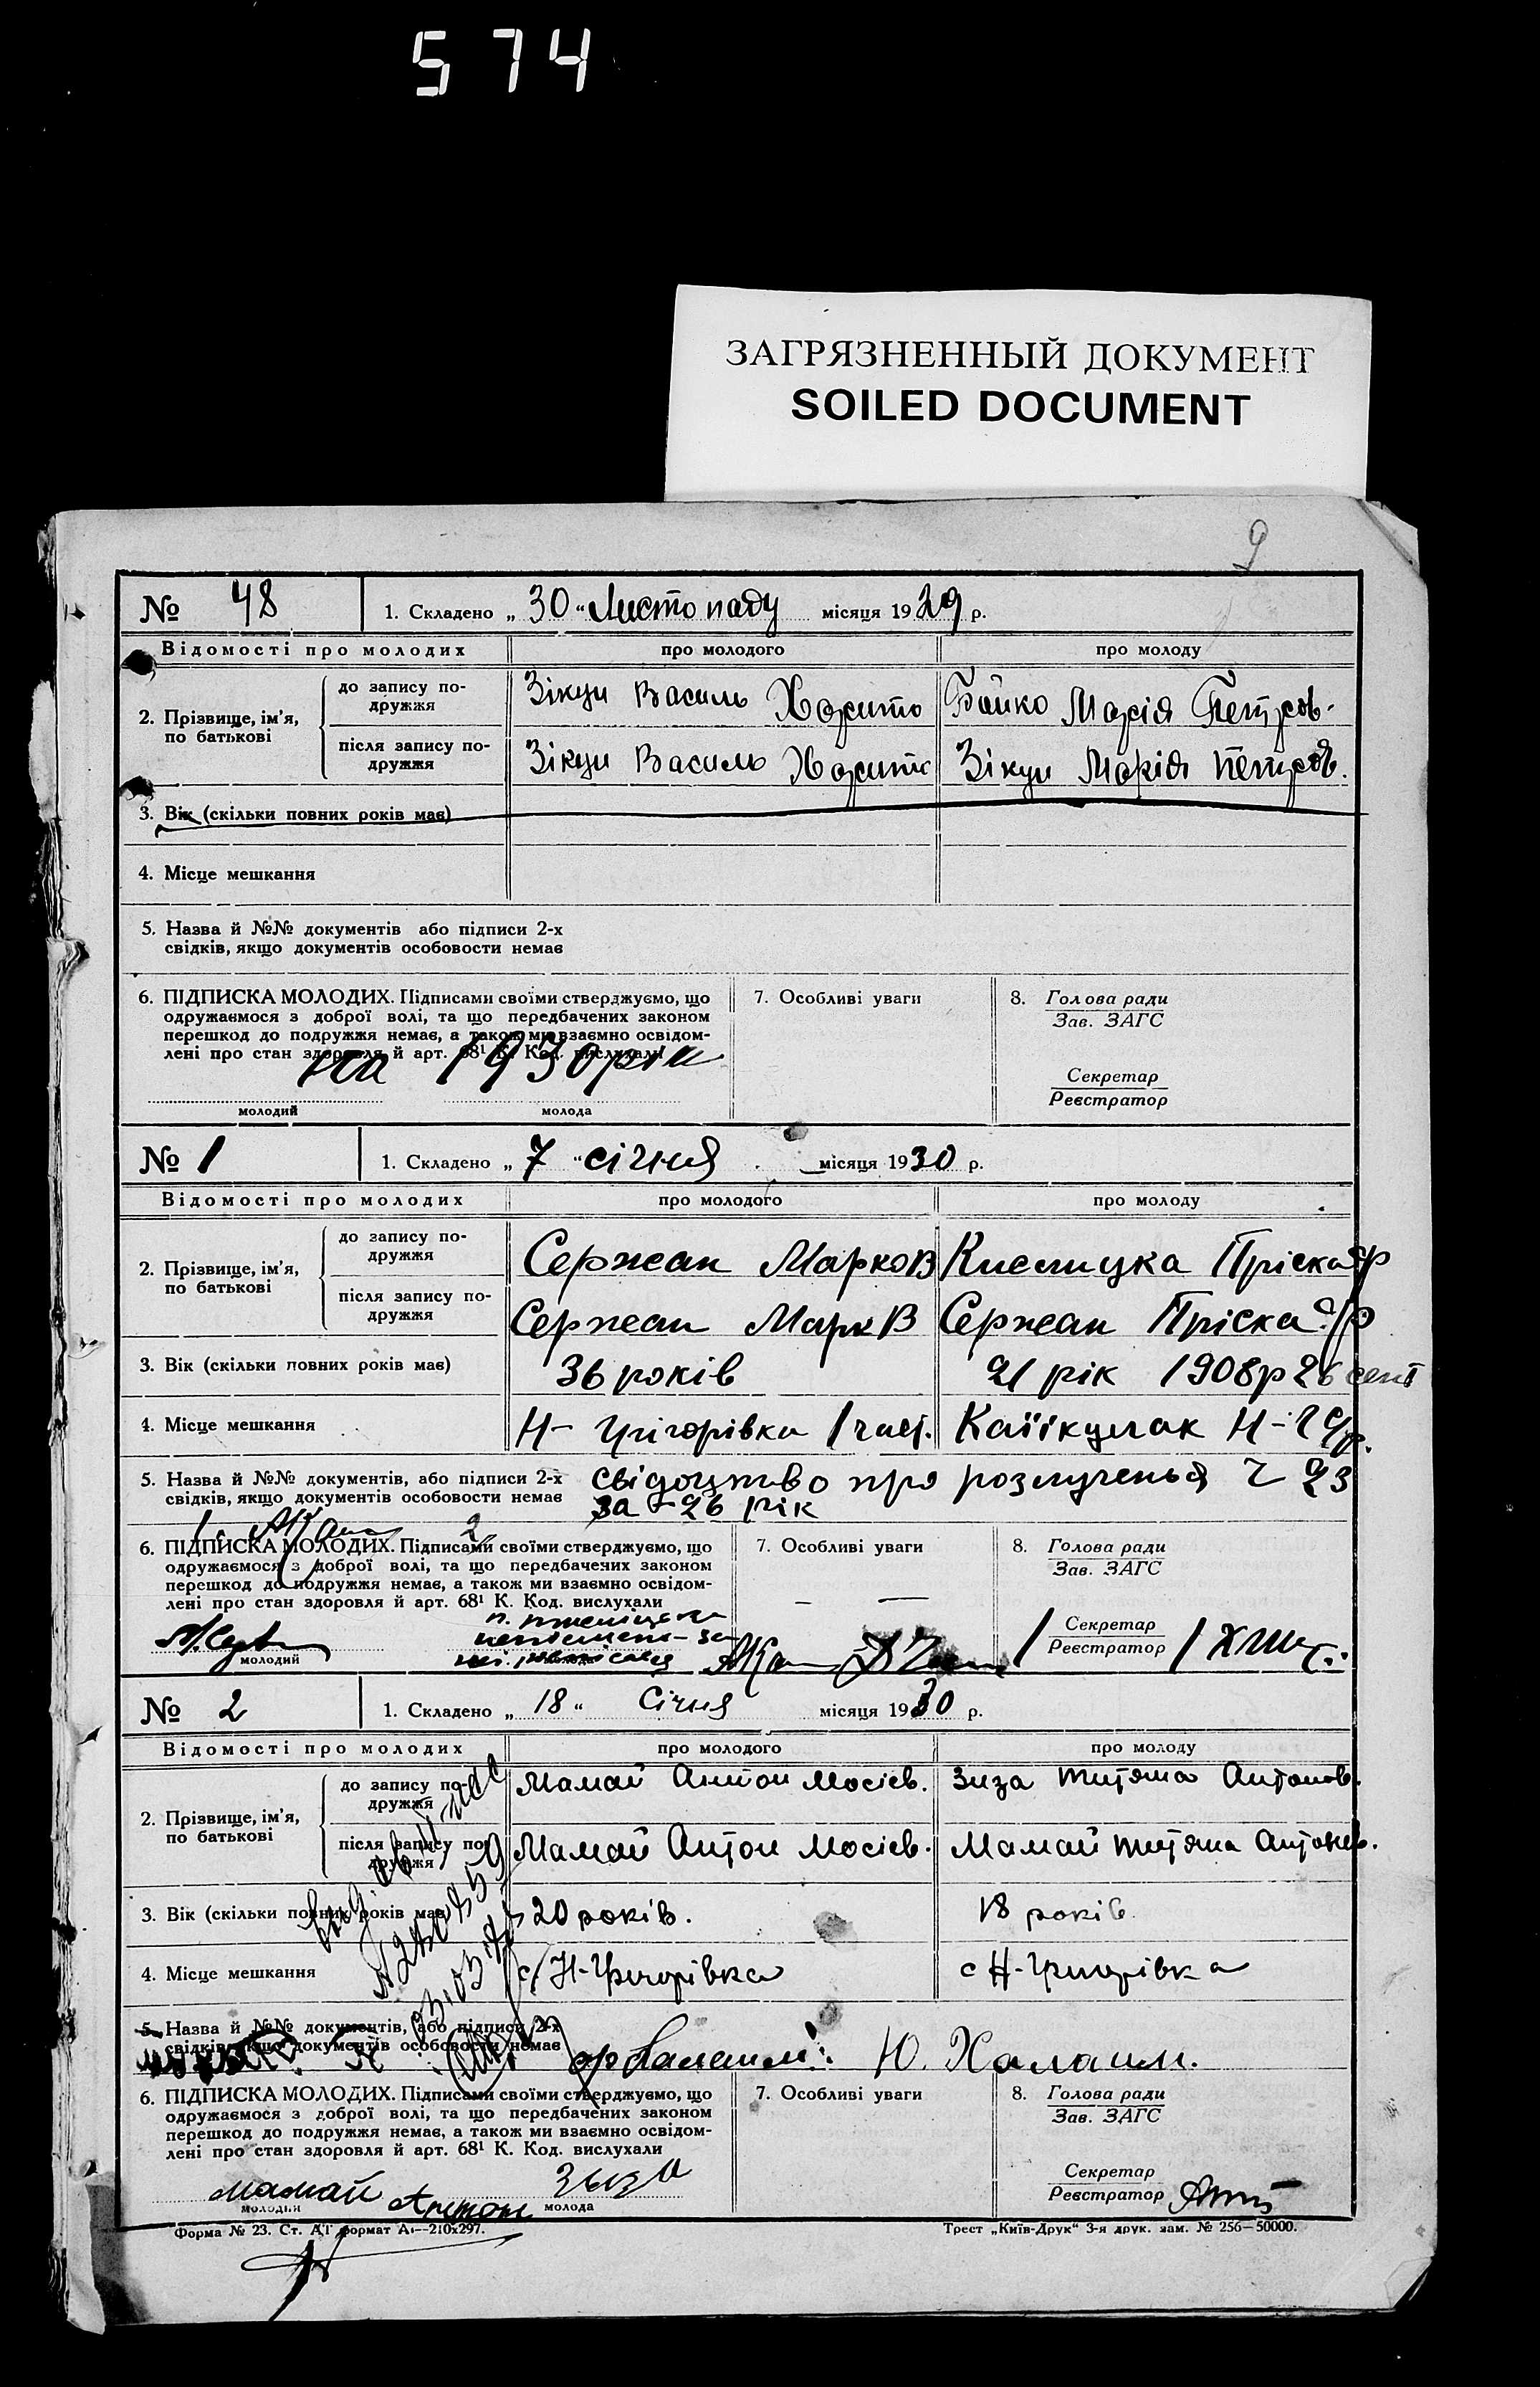 574
ЗАГРЯЗНЕННЫЙ ДОКУМЕНТ
SOILED DOCUMENT
9
№ 48 1. Складено „ 30 “ Листопаду місяця 1929 р.
Відомості про молодих про молодого про молоду
2. Прізвище, ім’я, по батькові
до запису по-
дружжя
Зікун Василь Харито Бойко Марія Петров.
після запису по-
дружжя
Зікун Василь Харито Зікун Марія Петров.
3. Вік (скільки повних років має)
4. Місце мешкання
5. Назва й №№ документів або підписи 2-х
свідків, якщо документів особовости немає
6. ПІДПИСКА МОЛОДИХ. Підписами своїми стверджуємо, що
одружаємося з доброї волі, та що передбачених законом
перешкод до подружжя немає, а також ми взаємно освідом-
лені про стан здоровля й арт. 68¹ К. Код. вислухали
на 1930 рік
молодий молода
7. Особливі уваги
8. Голова ради
Зав. ЗАГС
Секретар
Реєстратор
№ 1 1. Складено „ 7 “ січня місяця 1930 р.
Відомості про молодих про молодого про молоду
2. Прізвище, ім’я, по батькові
до запису по-
дружжя
Сержан Марко В Кислицка Пріска
після запису по-
дружжя
Сержан Марк В Сержан Пріска
3. Вік (скільки повних років має) 36 років 21 рік 1908р 26 сент
4. Місце мешкання Н- Григорівка 1 част. Каїікулак Н-
5. Назва й №№ документів, або підписи 2-х
свідків, якщо документів особовости немає
свідоцтво про розлученья Ч 23
за - 26 рік
6. ПІДПИСКА МОЛОДИХ. Підписами своїми стверджуємо, що
одружаємося з доброї волі, та що передбачених законом
перешкод до подружжя немає, а також ми взаємно освідом-
лені про стан здоровля й арт. 68¹ К. Код. вислухали
молодий
7. Особливі уваги
8. Голова ради
Зав. ЗАГС
Секретар
Реєстратор
№ 2 1. Складено „ 18 “ Січня місяця 1930 р.
Відомості про молодих про молодого про молоду
2. Прізвище, ім’я, по батькові
до запису по-
дружжя
Мамай Антон Мосієв. Зиза Титяна Антонов.
після запису по-
дружжя
Мамай Антон Мосієв. Мамай Титяна Антонов.
3. Вік (скільки повних років має) 20 років. 18 років
4. Місце мешкання с/Н-Григорівка с Н-Григорівка
5. Назва й №№ документів, або підписи 2-х
свідків, якщо документів особовости немає
Ю. Халаим.
6. ПІДПИСКА МОЛОДИХ. Підписами своїми стверджуємо, що
одружаємося з доброї волі, та що передбачених законом
перешкод до подружжя немає, а також ми взаємно освідом-
лені про стан здоровля й арт. 68¹ К. Код. вислухали
мамай Антон Зыза
молодий молода
7. Особливі уваги
8. Голова ради
Зав. ЗАГС
Секретар
Реєстратор
Форма № 23. Ст. АІ формат А₄—210х297. Трест „Київ-Друк“ 3-я друк. зам. № 256—50000.